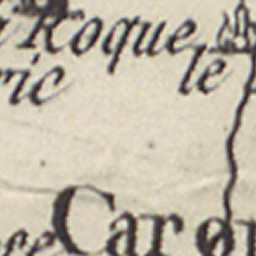 Roque
ric le
Caro